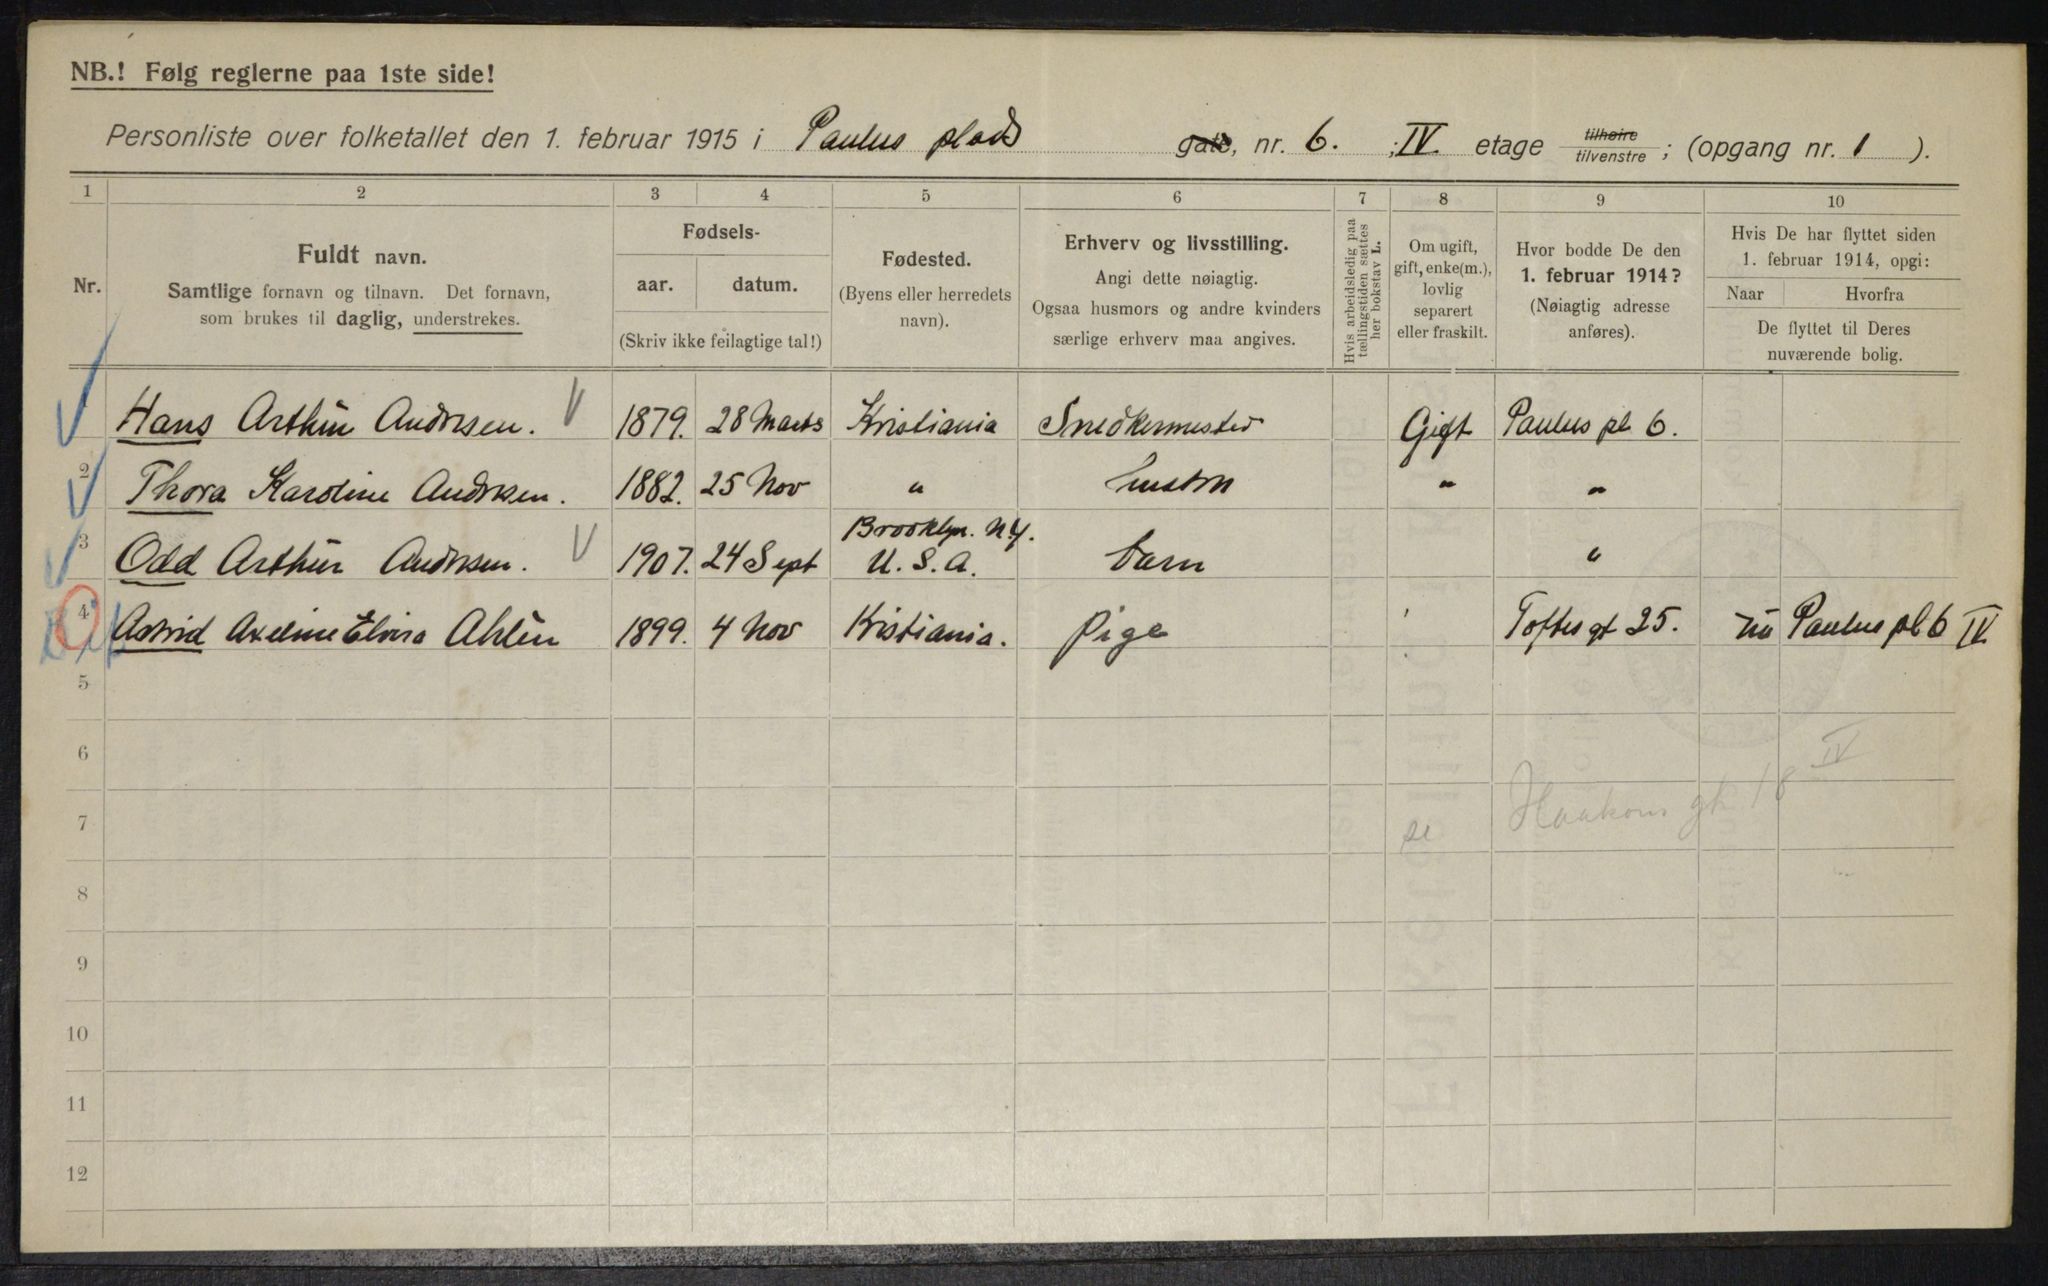 NB.! Følg reglerne paa 1ste side!
Personliste over folketallet den 1. februar 1915 i Paulus plads gate, nr. 6. ; IV. etage tilhøire tilvenstre ; (opgang nr. 1 ).
1 2 3 4 5 6 7 8 9 10
Nr.
Fuldt navn.
Samtlige fornavn og tilnavn. Det fornavn,
som brukes til daglig, understrekes.
Fødsels-
aar. datum.
(Skriv ikke feilagtige tal!)
Fødested.
(Byens eller herredets
navn).
Erhverv og livsstilling.
Angi dette nøiagtig.
Ogsaa husmors og andre kvinders
særlige erhverv maa angives.
Hvis arbeidsledig paa
tællingstiden sættes
her bokstav L.
Om ugift,
gift, enke(m.),
lovlig
separert
eller fraskilt.
Hvor bodde De den
1. februar 1914?
(Nøiagtig adresse
anføres).
Hvis De har flyttet siden
1. februar 1914, opgi:
Naar Hvorfra
De flyttet til Deres
nuværende bolig.
1 Hans Arthur Andresen. 1879. 28 Marts Kristiania Snedkermester Gift Paulus pl 6.
2 Thora Karoline Andresen. 1882. 25 Nov " hustru " "
3 Odd Arthur Andresen. 1907. 24 Sept Brooklyn. N.Y.
U. S. A. barn "
4 Astrid Axeline Elvira Ahlén 1899. 4 Nov Kristiania. pige Toftes gt 25. nu Paulus pl 6 IV
5
6 IV
7 se Haakons gt. 18
8
9
10
11
12